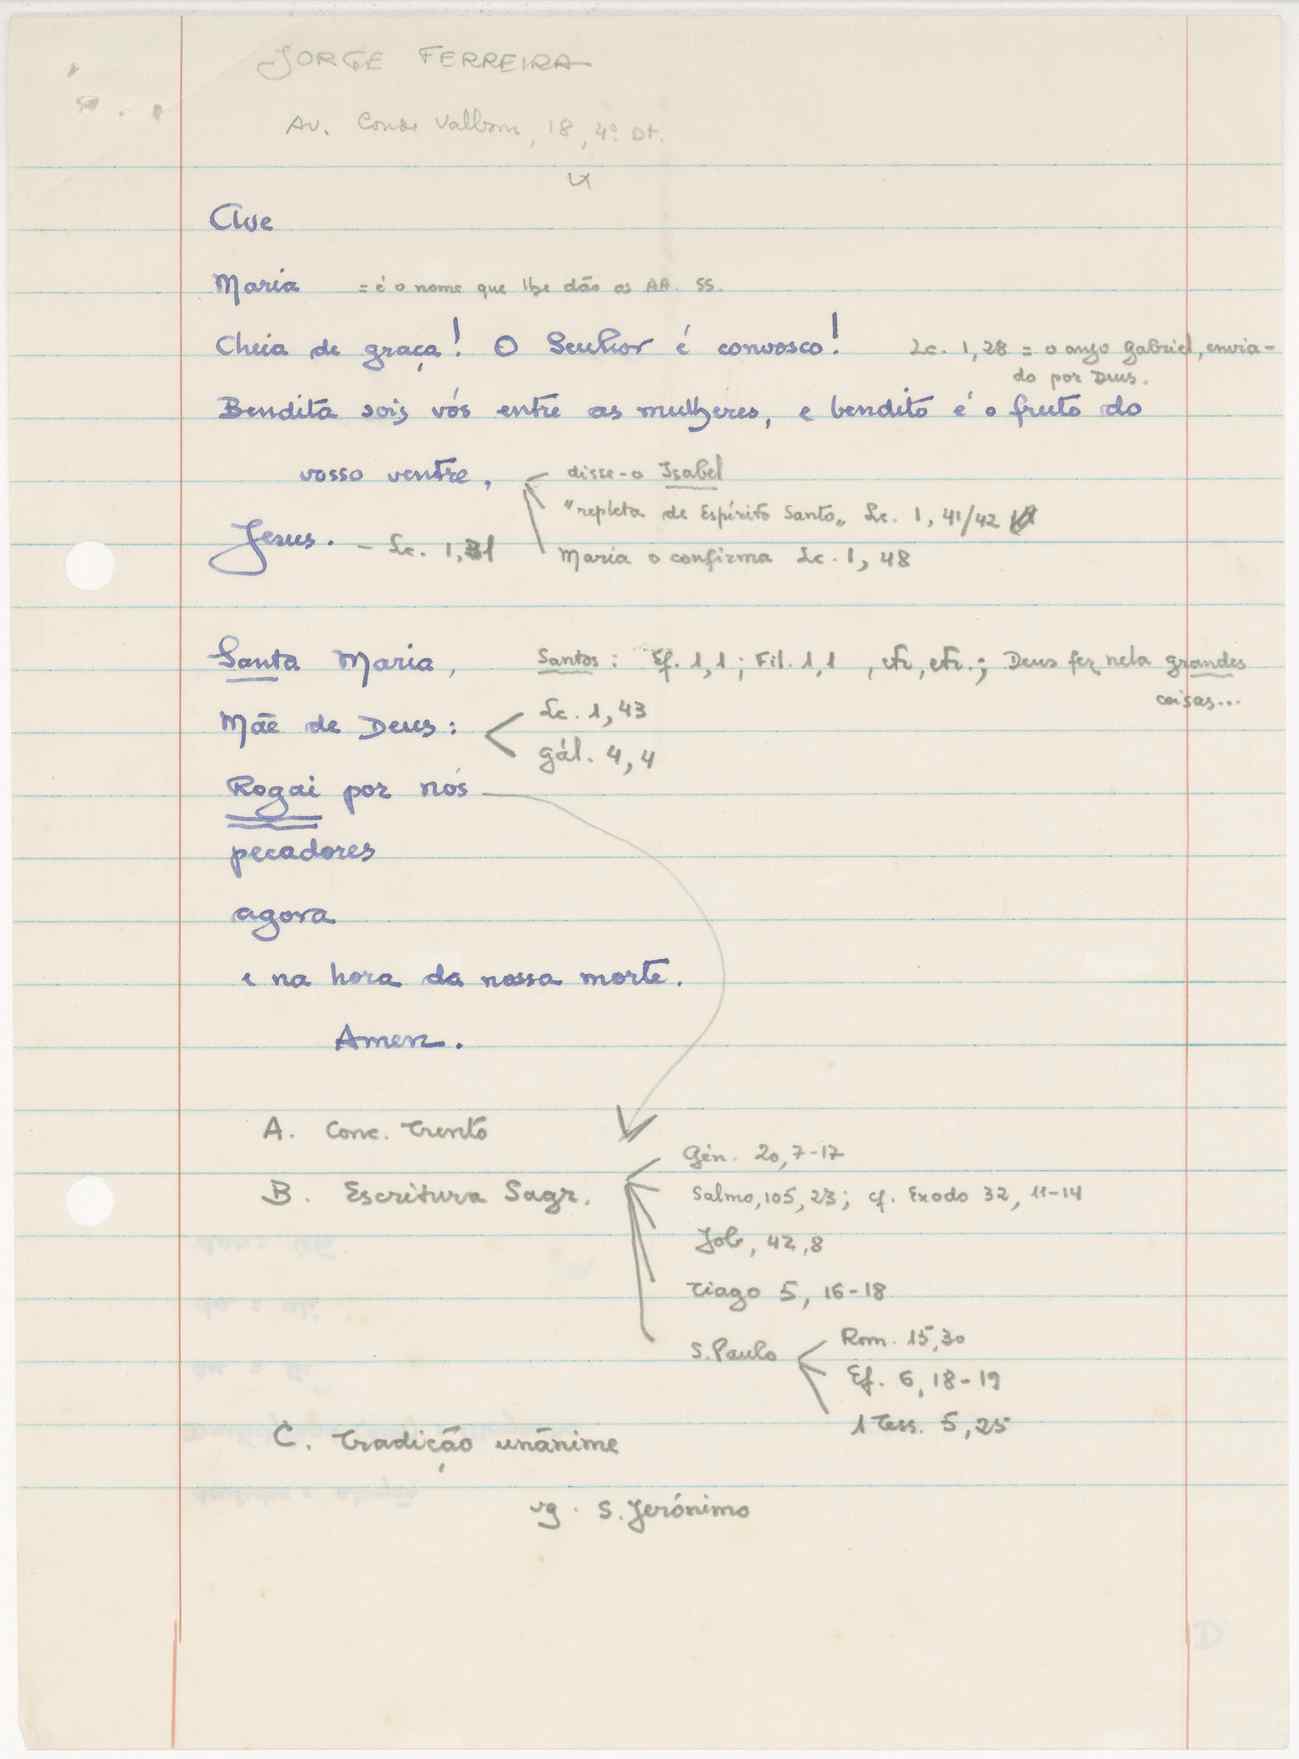 JORGE FERREIRA
Av. Conde Valbom, 18, 4º Dt.
Ave
Maria = é o nome que lhe dão os AA. SS.
Cheia de graça! O Senhor é convosco! Lc. 1,28 = o anjo Gabriel, envia-
do por Deus.
Bendita sois vós entre as mulheres, e bendito é o fruto do
vosso ventre, disse-o Isabel
"repleta de Espírito Santo„ Lc. 1, 41/42
Jesus. - Lc. 1,31
Maria o confirma Lc. 1, 48
Santa Maria, Santos: Ef. 1,1; Fil. 1,1, etc, etc.; Deus fez nela grandes
coisas...
Lc. 1, 43
Mãe de Deus:
Gál. 4, 4
Rogai por nós
pecadores
agora
e na hora da nossa morte.
Amen.
A. Conc. Trento
Gén. 20, 7-17
B. Escritura Sagr.
Salmo, 105, 23; cf. Exodo 32, 11-14
Job, 42,8
Tiago 5, 16-18
S. Paulo
Rom. 15,30
Ef. 6, 18-19
1 Tess. 5, 25
C. Tradição unânime
vg. S. Jerónimo